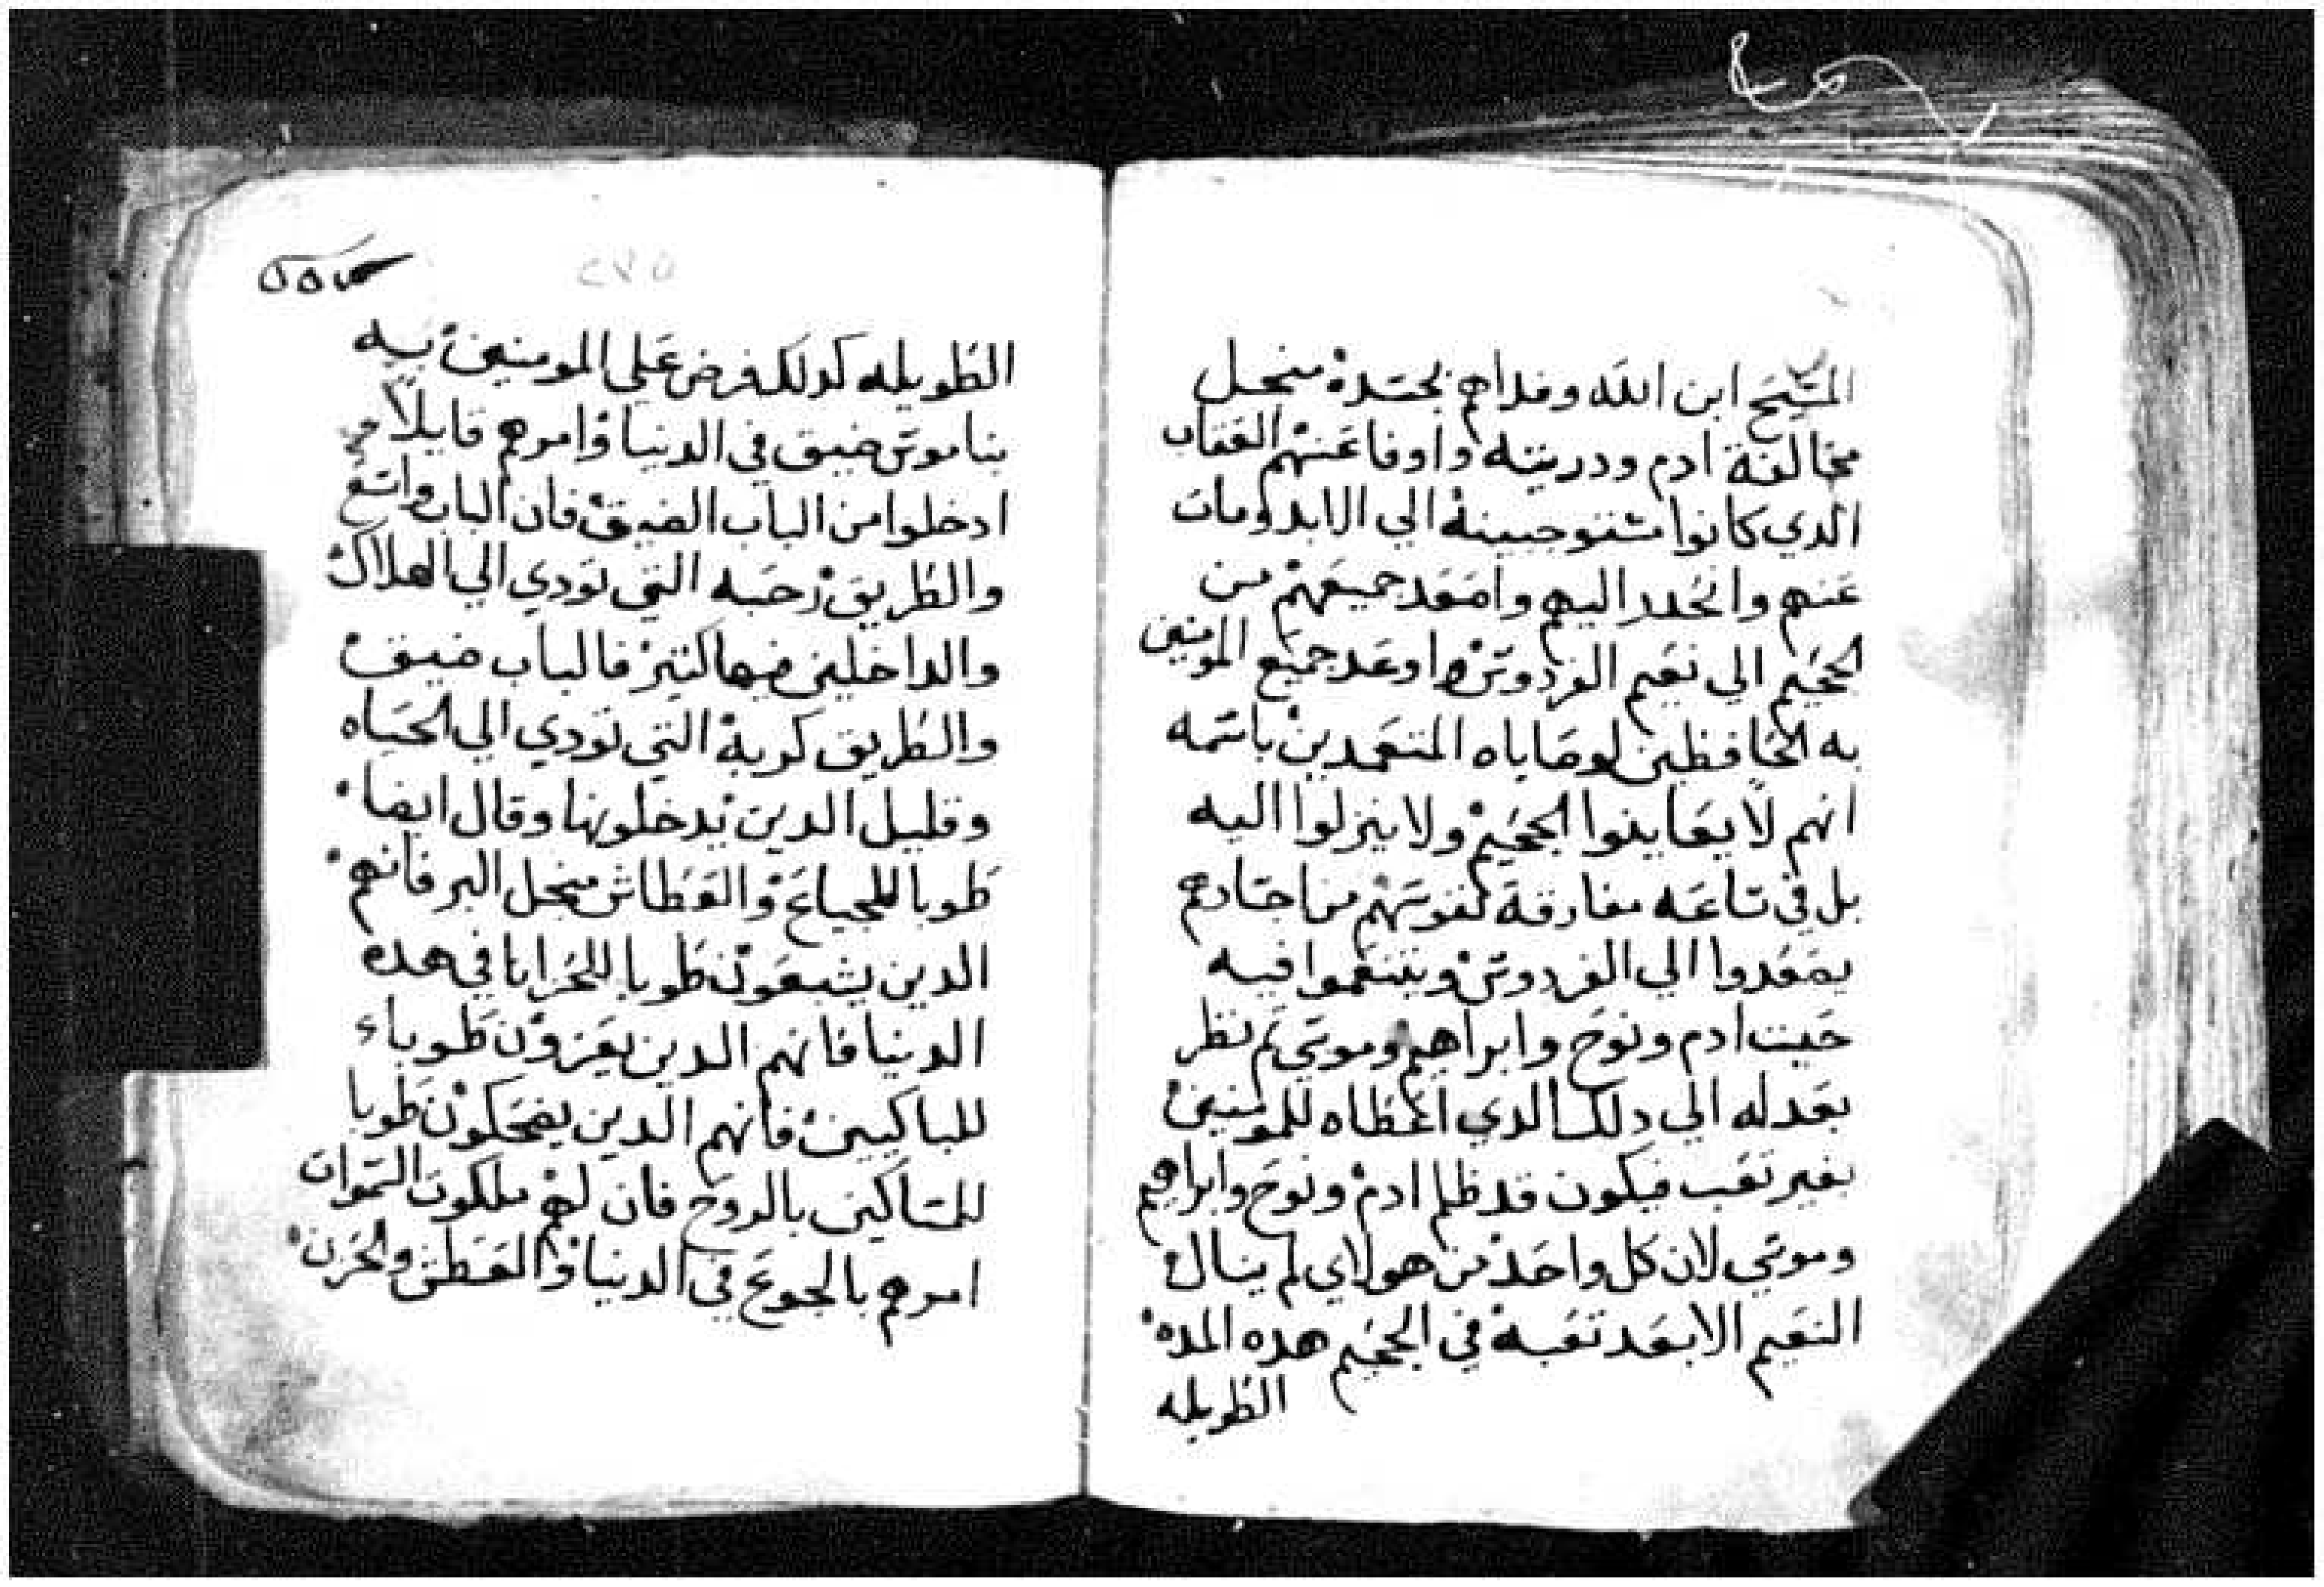 المسيح ابن الله وفداهم بجسده منجل
مخالفة ادم ودريته واوفا عنهم العقاب
الدي كانوا مستوجبينه الي الابد ومات
عنهم وانحدر اليهم واصعد جميعهم من
الجحيم الي نعيم الفردوس واوعد جميع المومنين
به الحافظين لوصاياه المتعمدين باسمه
انهم لا يعاينوا الجحيم ولا ينزلوا اليه
بل في ساعه مفارقة نفوسهم من اجسادهم
يصعدوا الي الفردوس ويتنعموا فيه
حيت ادم ونوح وابراهيم وموسي تم نظر
بعدله الي دلك الدي اعطاه للمومنين
بغير تعب فيكون قد ظلم ادم ونوح وابراهيم
وموسي لان كل واحد من هولاي لم ينال
النعيم الا بعد تعبه في الجحيم هده المده
الطويله
الطويله كدلك فرض علي المومنين بيه
بناموس ضيق في الدنيا وامرهم قايلا
ادخلوا من الباب الضيق فان الباب واسع
والطريق رحبه التي تودي الي الهلاك
والداخلين فيها كتير فالباب ضيق
والطريق كربة التي تودي الي الحياه
وقليل الدين يدخلونها وقال ايضا
طوبا للجياع والعطاش منجل البر فانهم
الدين يشبعون طوبا للحزانا في هده
الدنيا فانهم الدين يعزون طوباء
للباكيين فانهم الدين يضحكون طوبا
للمساكين بالروح فان لهم ملكوت السموات
امرهم بالجوع في الدنيا والعطش والحزن